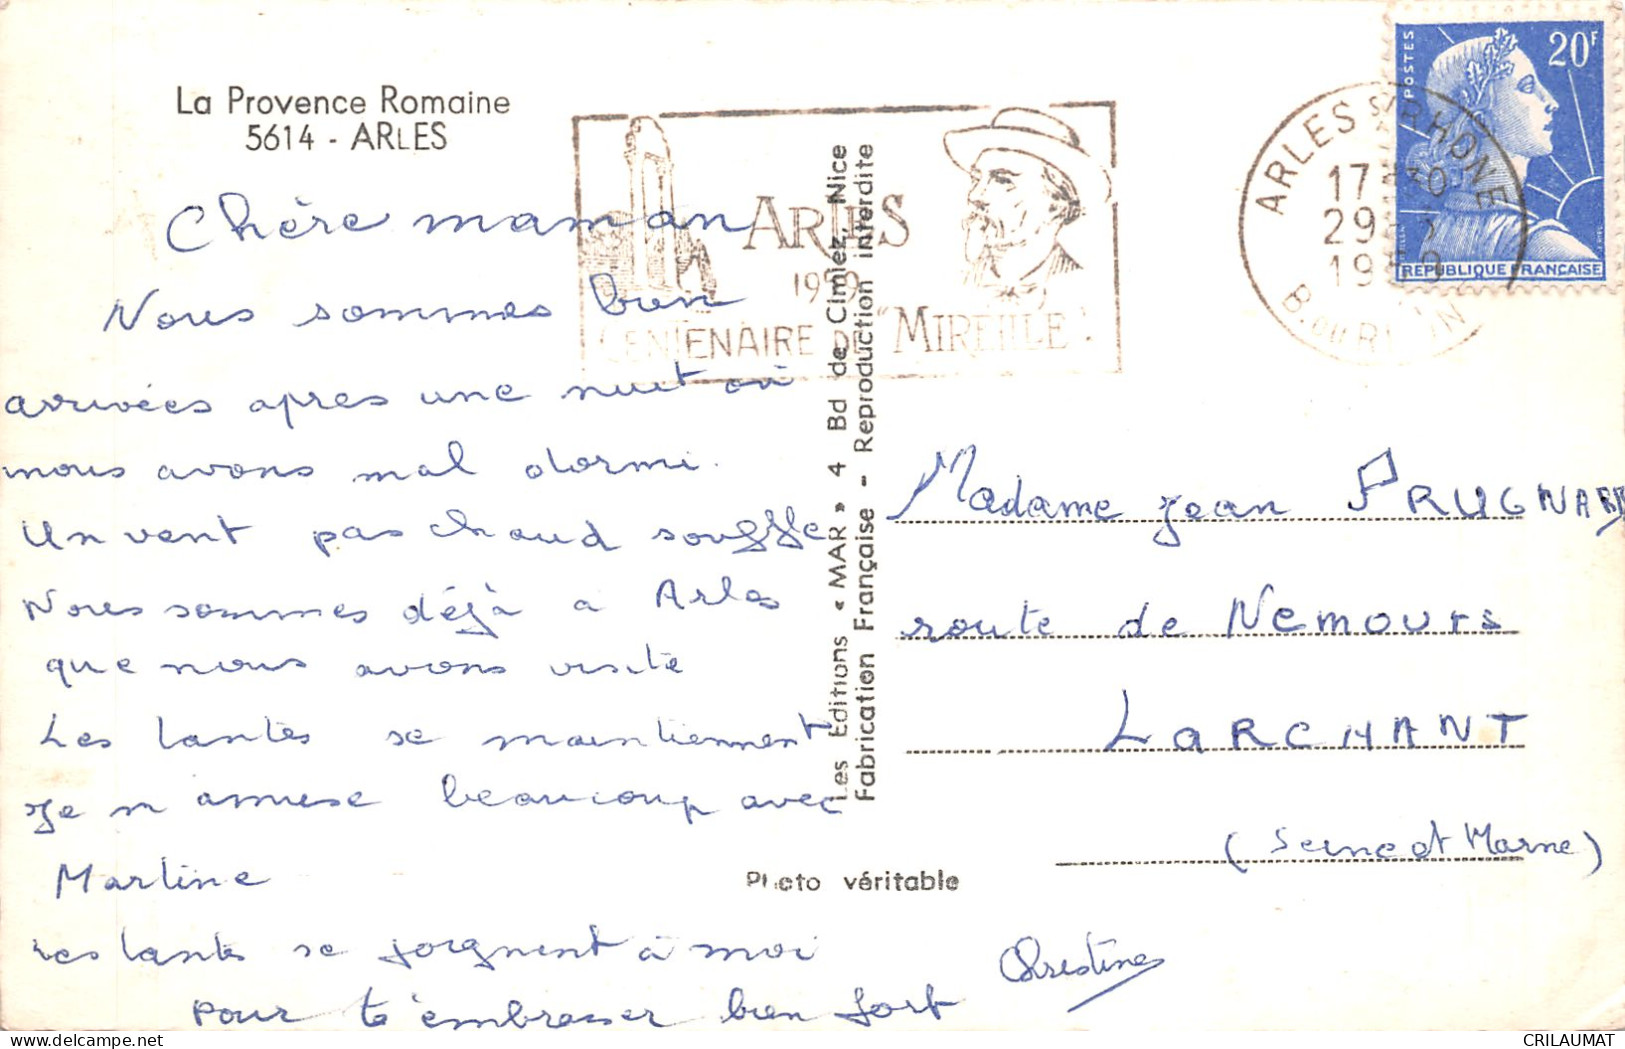 La Provence Romaine
5614 - ARLES
Chère maman
Nous sommes bien
arrivées après une nuit où
nous avons mal dormi.
Un vent pas chaud souffle
Nous sommes déjà à Arles
que nous avons visité
Les tantes se maintiennent
Je m'amuse beaucoup avec
Martine
Les tantes se joignent à moi
pour t'embrasser bien fort
Christine
ARLES
CENTENAIRE DE "MIREILLE"
Les Editions « MAR » 4 Bd de Cimiez, Nice
Fabrication Française - Reproduction interdite
Photo véritable
POSTES
20F
REPUBLIQUE FRANÇAISE
ARLES S/ RHONE
17
29
B. DU RHÔNE
Madame Jean PRUGNARD
route de Nemours
LARCHANT
(Seine et Marne)
CRILAUMAT